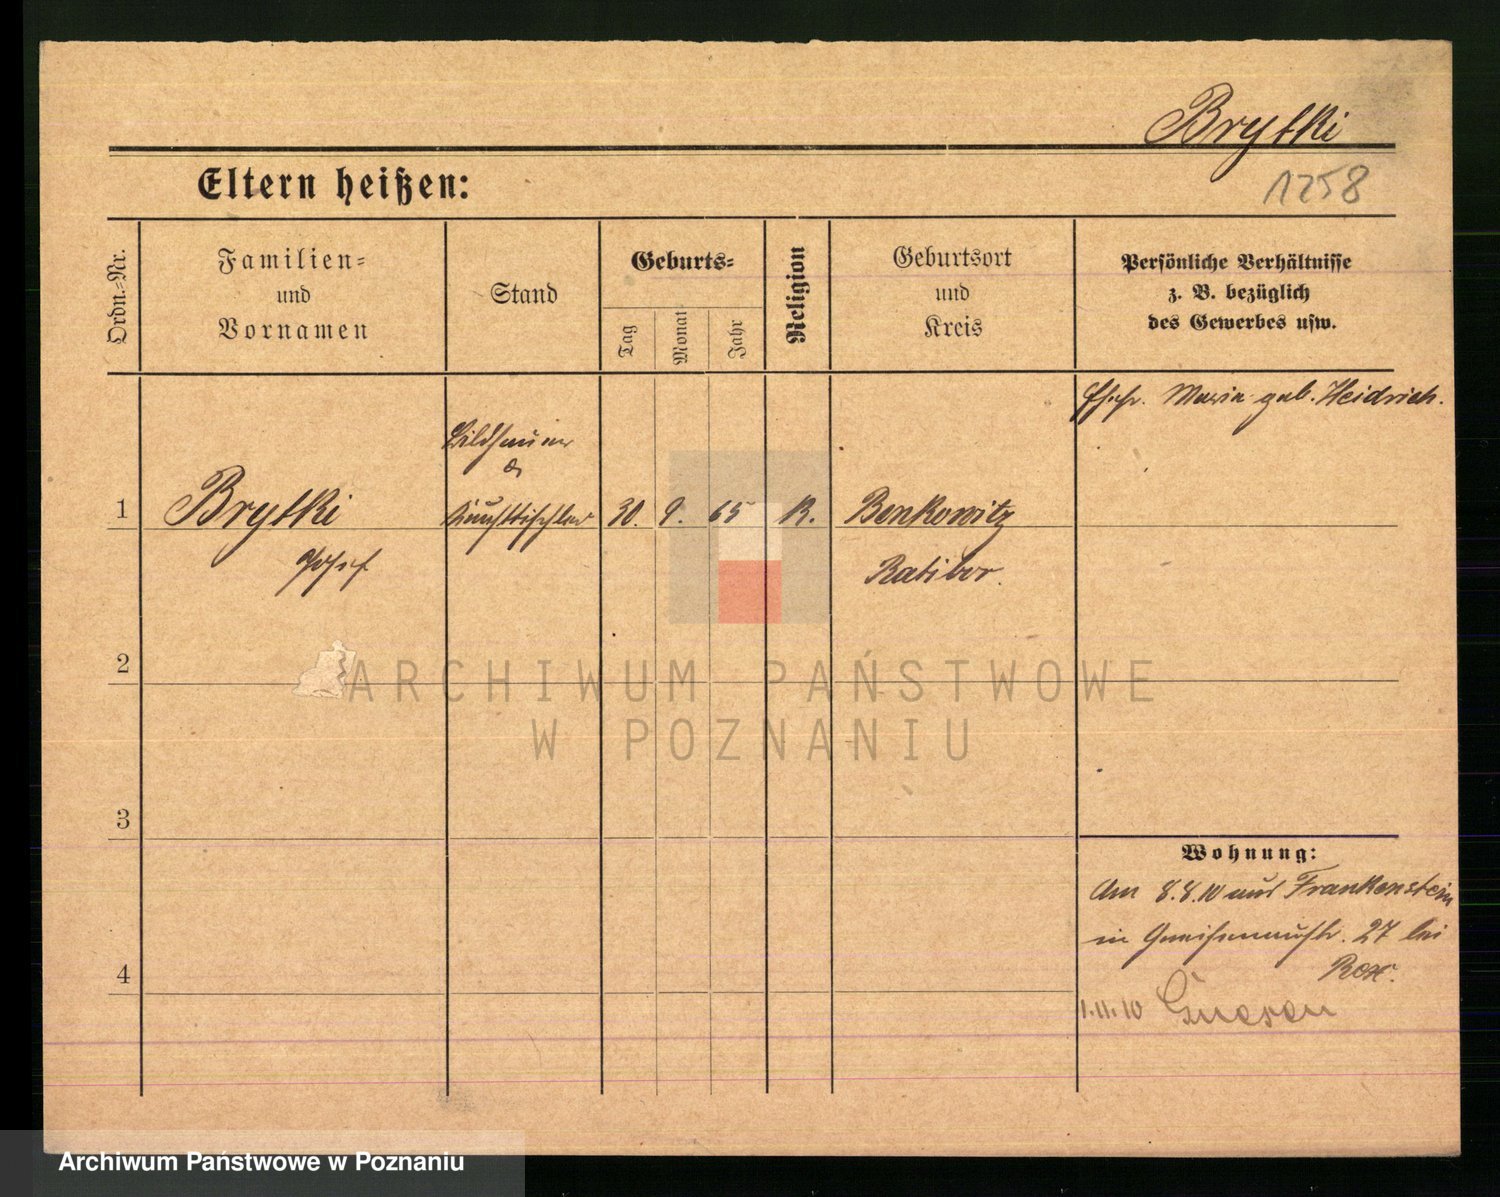 Brytki
1258
Eltern heißen:
Ordn.-Nr.
Familien-
und
Vornamen
Stand
Geburts-
Tag
Monat
Jahr
Religion
Geburtsort
und
Kreis
Persönliche Verhältnisse
z. B. bezüglich
des Gewerbes usw.
Ehefr. Maria geb. Heidrich.
Bildhauer
&
1 Brytki Kunsttischler 30. 9. 65 K. Benkowitz
Josef Ratibor.
2
ARCHIWUM PAŃSTWOWE
W POZNANIU
3
Wohnung:
Am 8.8.10 aus Frankenstein
in Gneisenaustr. 27 bei
4
1.11.10 Gnesen
Archiwum Państwowe w Poznaniu